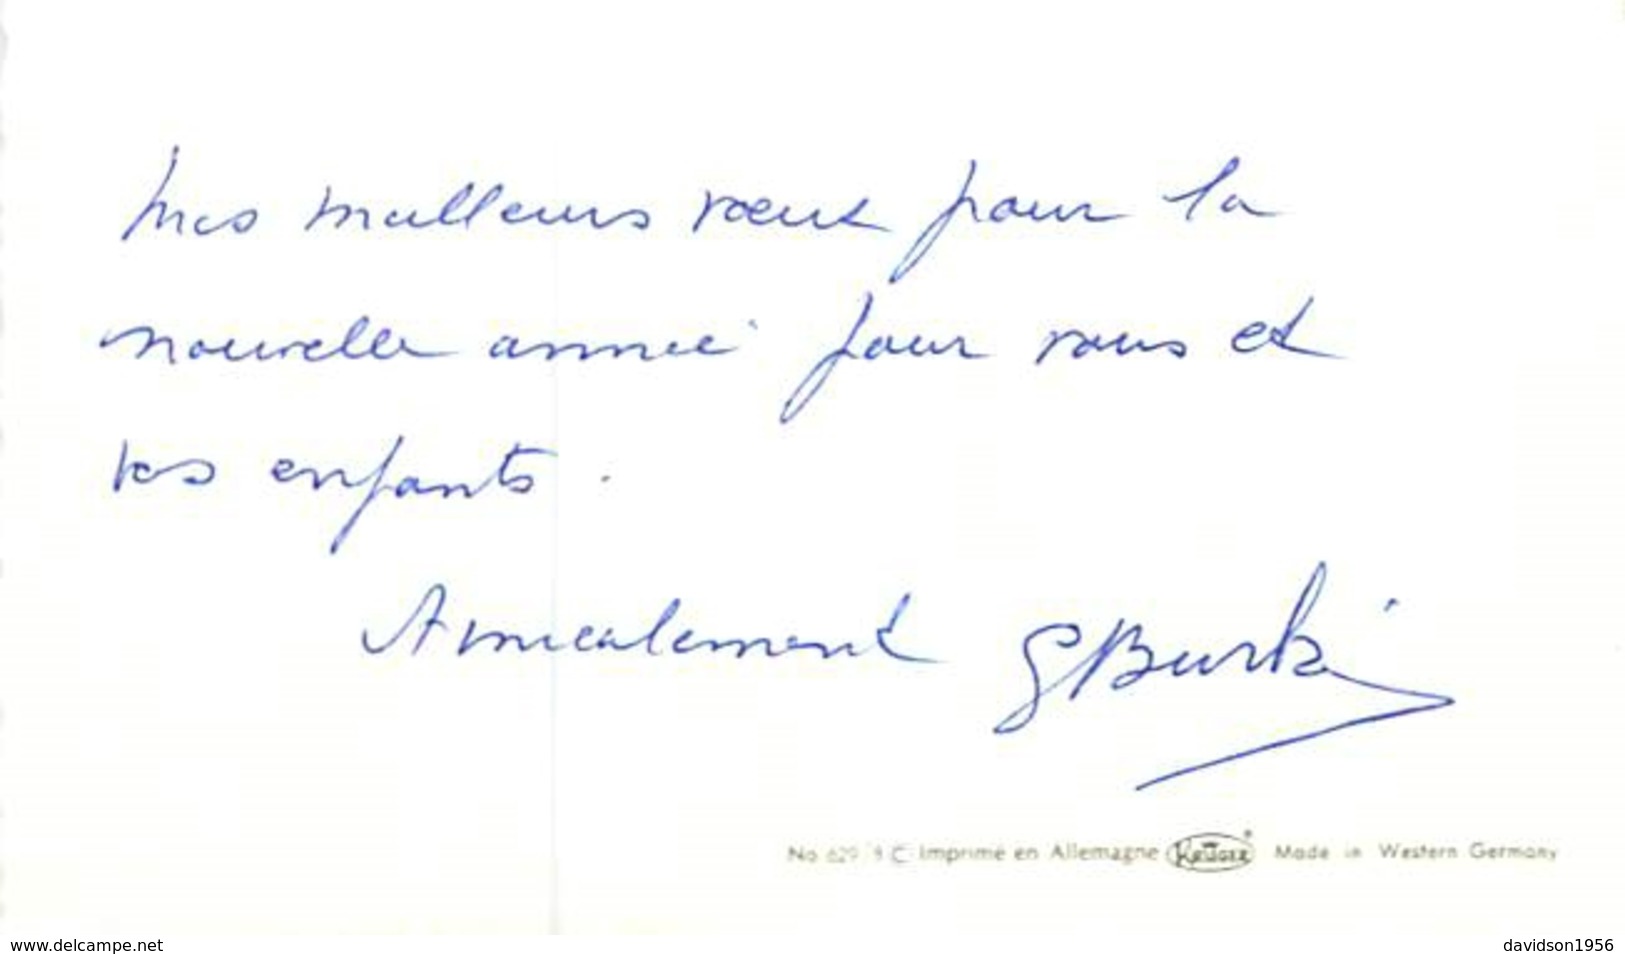 Mes meilleurs vœux pour la
nouvelle année pour vous et
vos enfants.
Amicalement GBurki
No 629 C Imprimé en Allemagne KRÜGER Made in Western Germany
www.delcampe.net
davidson1956